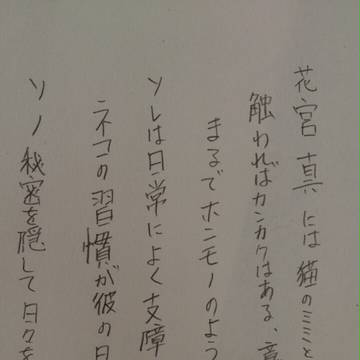 花宮真には猫のミミと
触わればカンカクはある、意
まるでホンモノのよう
ソレは日常によく支障
ネコの習慣が彼の日
ソノ秘密を隠して日々を